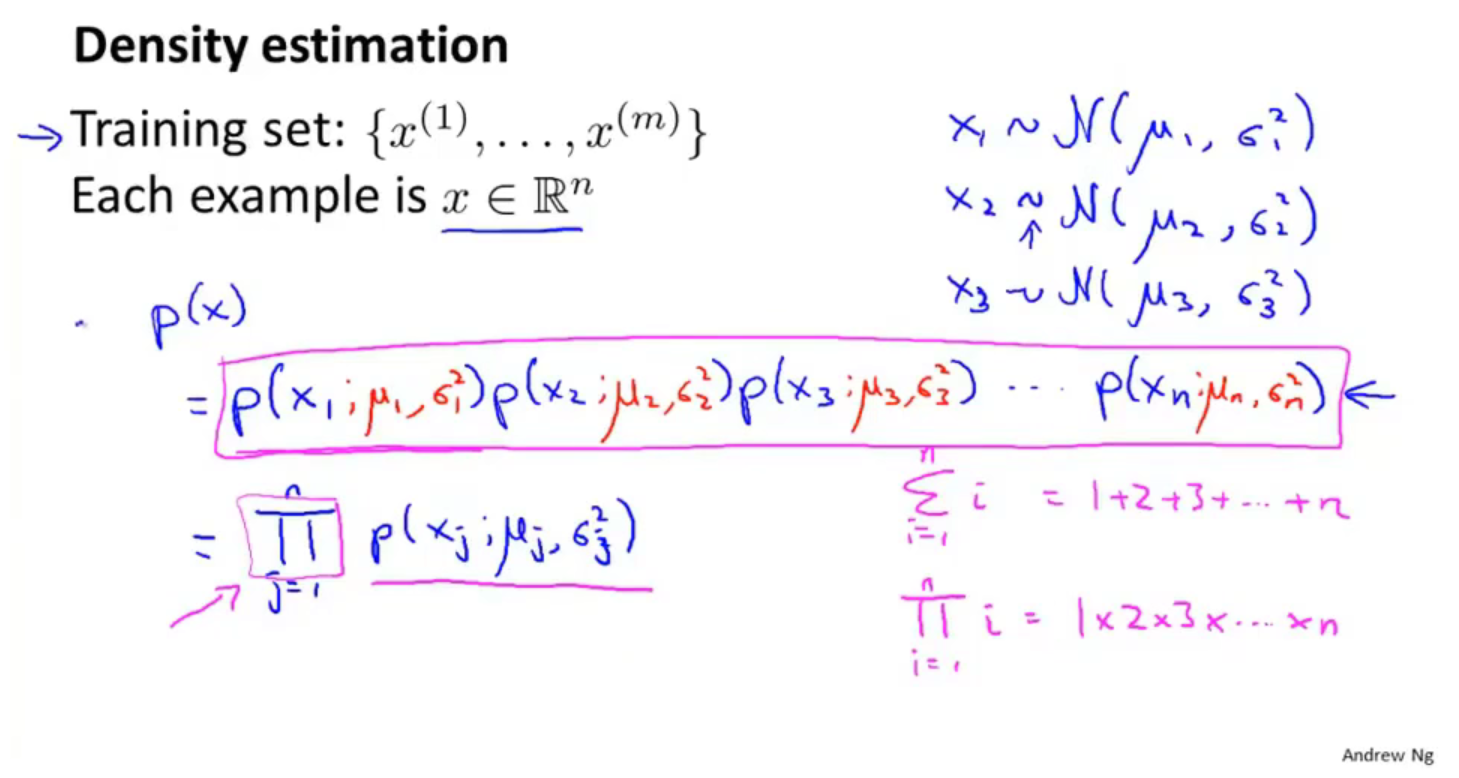 Density estimation
→ Training set: {x⁽¹⁾, . . . , x⁽ᵐ⁾}
Each example is x ∈ ℝⁿ
x₁ ~ N(μ₁, σ₁²)
x₂ ~ N(μ₂, σ₂²)
↑
x₃ ~ N(μ₃, σ₃²)
p(x)
= p(x₁; μ₁, σ₁²) p(x₂; μ₂, σ₂²) p(x₃; μ₃, σ₃²) ··· p(xₙ; μₙ, σₙ²) ←
= ∏ⱼ₌₁ⁿ p(xⱼ; μⱼ, σⱼ²)
∑ᵢ₌₁ⁿ i = 1+2+3+···+n
∏ᵢ₌₁ⁿ i = 1×2×3×···×n
Andrew Ng